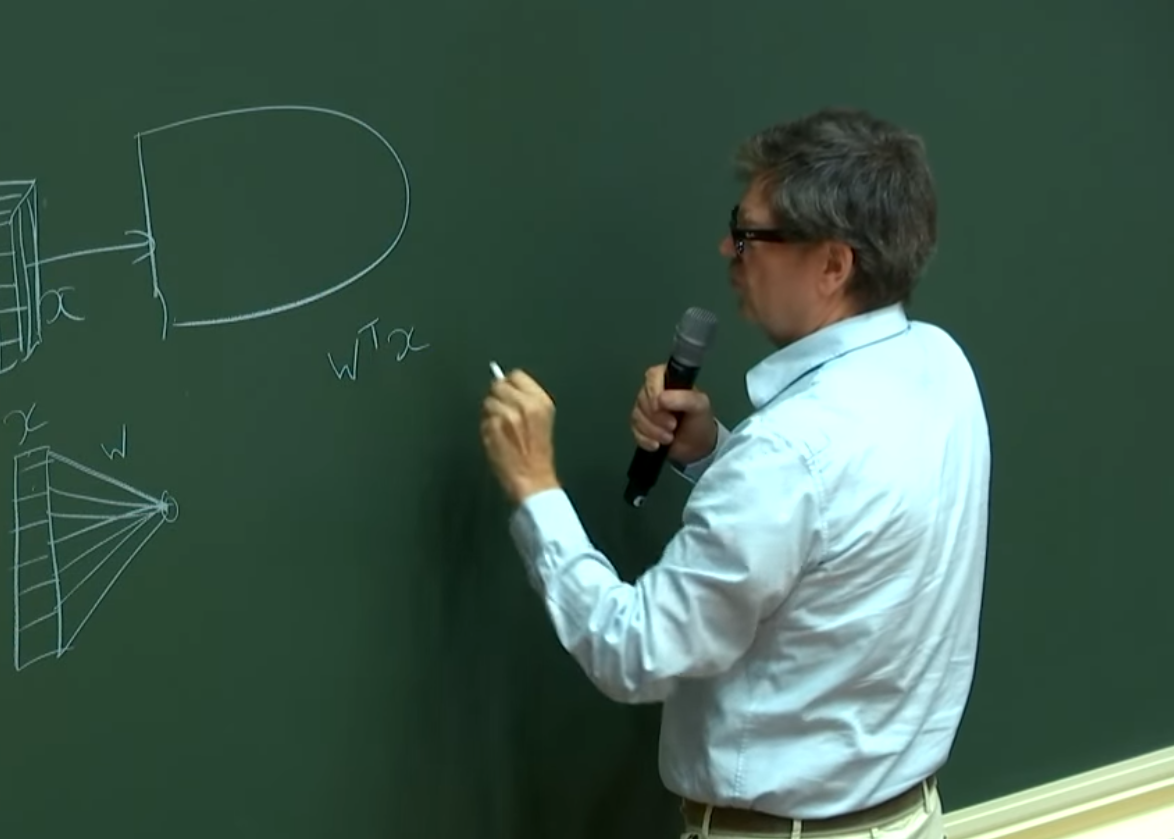 x
W^T x
x
W